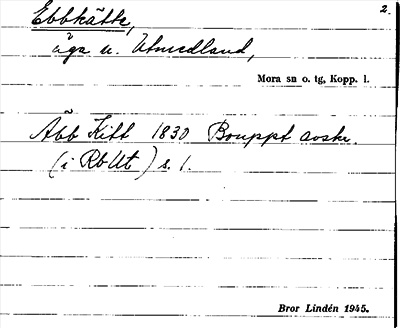 Ebbkätte, 2.
äga u. Utmedland,
Mora sn o. tg, Kopp. l.
Äbb Kitt 1830 Bouppt avskr.
(i RbUt) s. 1.
Bror Lindén 1945.